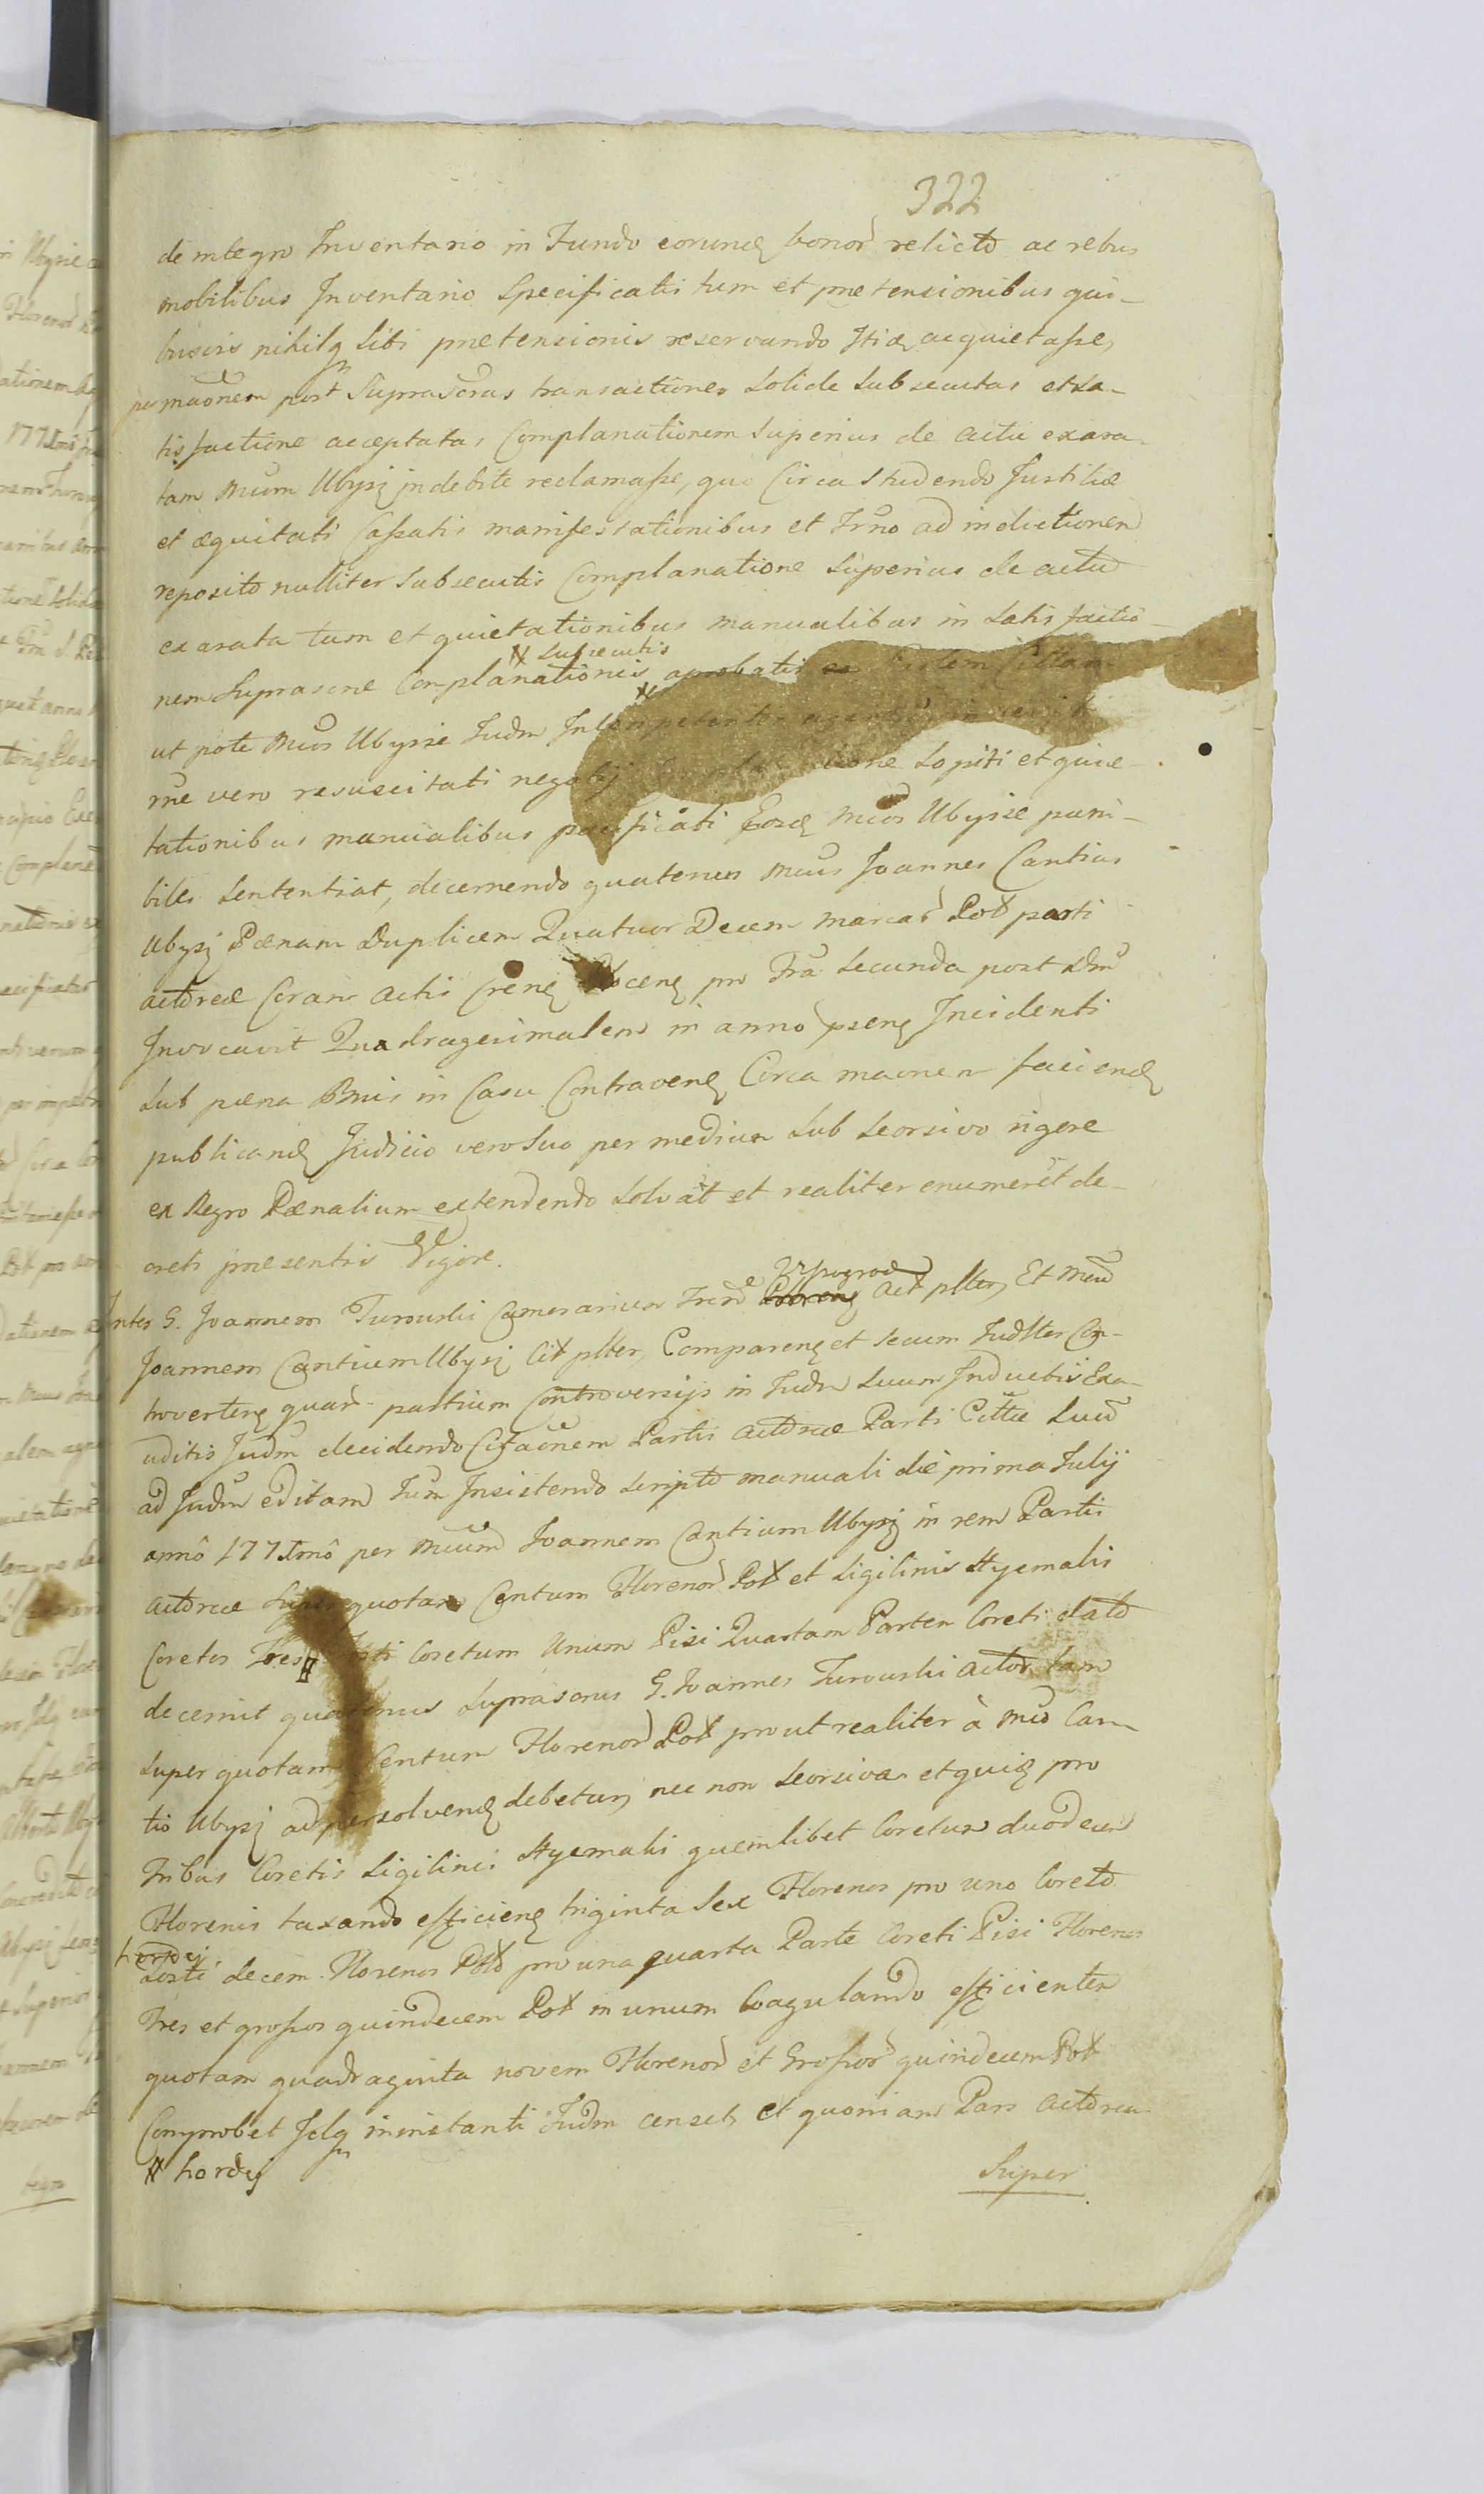 322
de integro Inventario in Fundo eorundẹ bonor̃ relicto ac rebus
mobilibus Inventario Specificatis tum et prætensionibus qui-
busvis nihilq̨ Sibi prætensionis reservando acquietasse,
post Suprascras transactiones Solide Subsecutas et sa-
tisfactione acceptatas Complanationem Superius de actu exara-
tam Mcum Ubysz indebite reclamasse, quo Circa Studendo Justitiæ
et æquitati Cassatis manifestationibus et Trno ad inductionem
reposito nulliter Subsecutis Complanatione Superius de actu
exarata tum et quietationibus manualibus in Satisfactio-
# Subsecutis
nem Suprascræ Complanationis # aprobatis
ut pote Mcos Ubysze Judm Incompetenter
rne vero resuscitati negotij Sopiti et quie-
tationibus manualibus pacificati Eosdẹ Mcos Ubysze puni-
biles Sententiat, decernendo quatenus Mcus Joannes Cantius
Ubysz Pænam Duplicem Quatuor Decem Marcar̃ Pol parti
actoreæ Coram Actis pro Fra Secunda post Dm̃
Invocavit Quadragesimalem in anno præsenẹ Incidenti
Sub pæna Bnis in Casu Contravenẹ Circa maonem faciendẹ
publicandẹ Judicio vero Suo per medium Sub Seorsivo rigore
ex Regro Pænalium extendendo Solvat et realiter enumeret de-
creti præsentis Vigore.
Inter G. Joannem Turowski Camerarium Vyssogrod Act pltter, Et Mcum
Joannem Cantium Ubysz Cit pltter, Comparenẹ et Secum Judltter Con-
trovertenẹ quar̃ partium Controversijs in Judm Suum Inductis Exa-
uditis Judm decidendo Citaonem Partis Actoreæ Parti Cittæ Suum
ad Judm editam Tum Insistendo Scripto manuali die prima Julij
anno 177Imo per Mcum Joannem Cantium Ubysz in rem Partis
Actoreæ Super quotam Centum Florenor̃ Pol et Sigilinis Hyemalis
Coretos Tres # Coretum Unum Pisi Quartam Partem Coreti dato
decernit quatenus Suprascrus G. Joannes Turowski Actor tam
Super quotam Centum Florenor̃ Pol prout realiter à Mco Can-
tio Ubysz ad persolvenẹ debetur, nec non Seorsiva pro
tribus Coretis Sigilinis Hyemalis quemlibet Coretum duodecem
Florenis taxando efficienẹ triginta Sex Florenos pro uno Coreto
hordej
decem Florenos Pol pro una quarta Parte Coreti Pisi Florenos
Tres et grossos quindecem Pol in unum Coagulando efficientem
quotam quadraginta novem Florenor̃ et Grossor̃ quindecem Pol
Comprobet Idq̨ in instanti Judm censet, et quoniam Pars Actorea
# hordej
Super